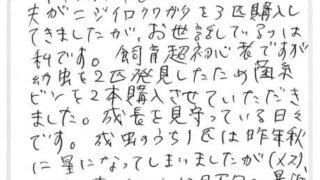 夫がニジイロクワガタを3匹購入し
てきましたが、お世話しているのは
私です。飼育超初心者ですが
幼虫を2匹発見したため菌糸
ビンを2本購入させていただき
ました。成長を見守っている日々
です。成虫のうち1匹は昨年秋
に星になってしまいましたが(メス)、